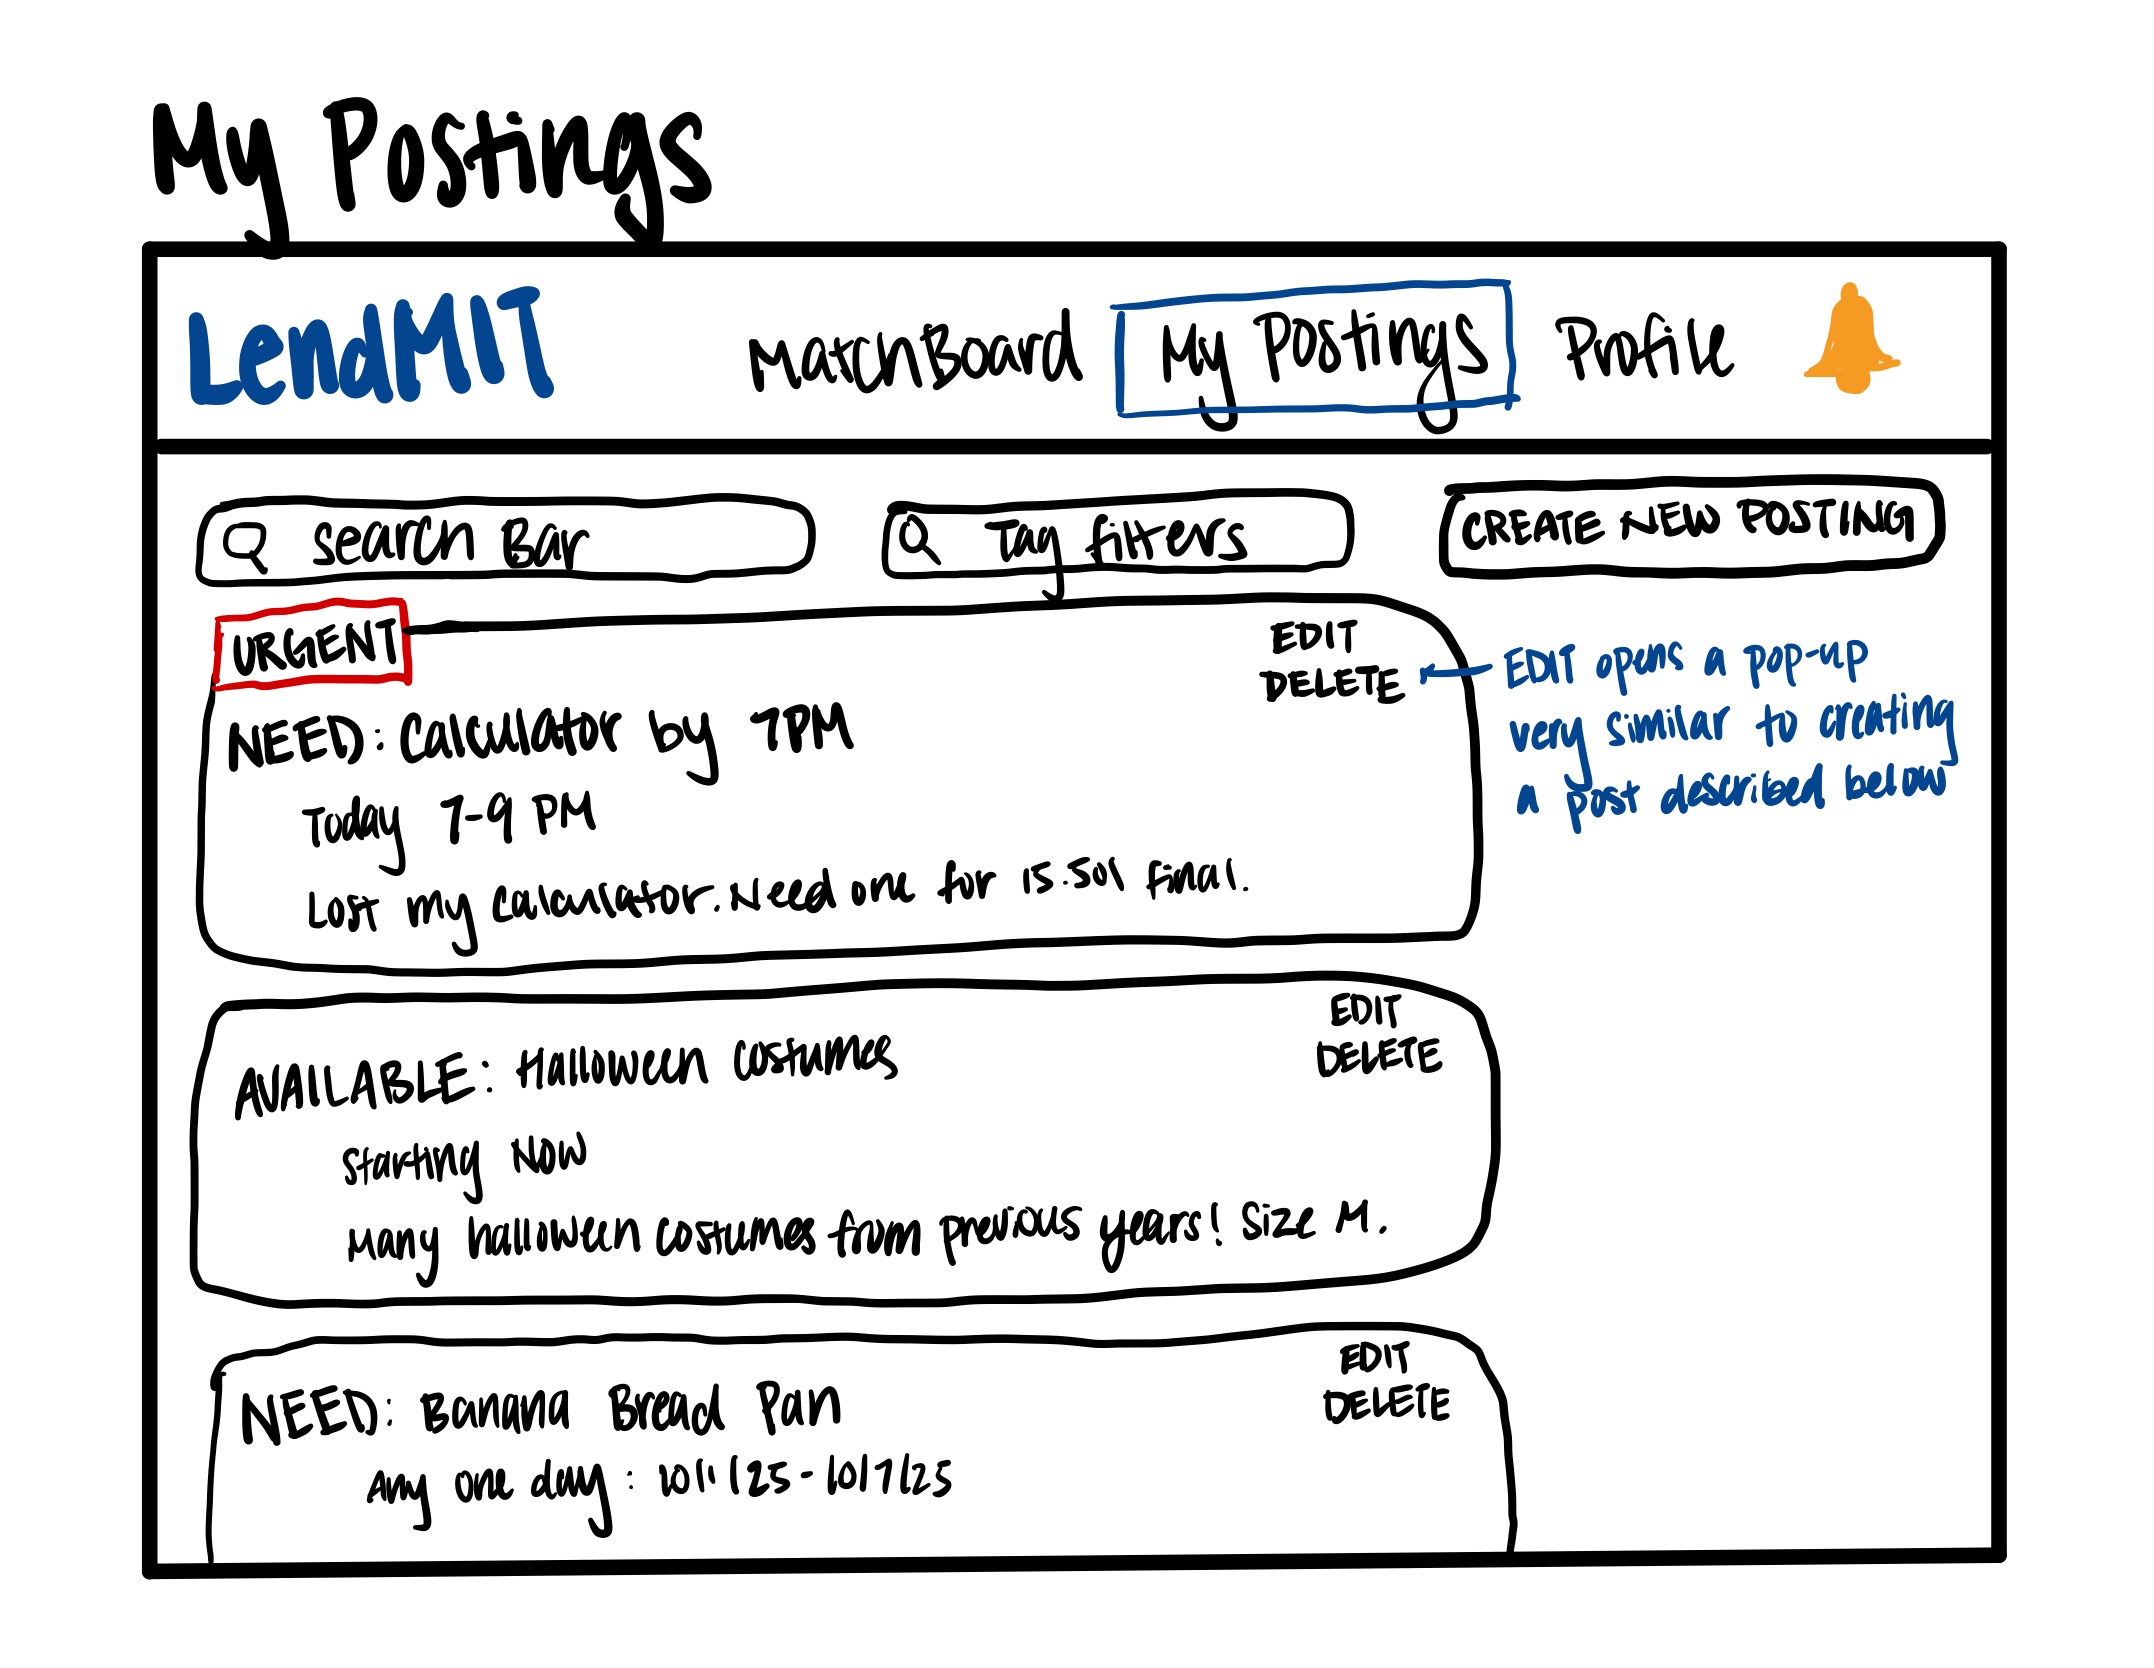 My Postings
LendMIT
MatchBoard
My Postings
Profile
Search Bar
Tag filters
CREATE NEW POSTING
URGENT
EDIT
DELETE
EDIT opens a pop-up
very similar to creating
a post described below
NEED: Calculator by 7PM
Today 7-9 PM
Lost my calculator. Need one for 15.501 final.
EDIT
DELETE
AVAILABLE: Halloween Costumes
Starting NOW
Many halloween costumes from previous years! Size M.
EDIT
DELETE
NEED: Banana Bread Pan
Any one day: 10/1/25-10/7/25